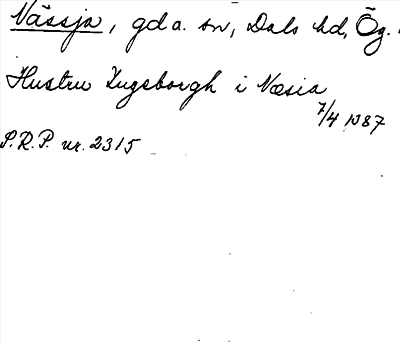 Nässja, gd a. sn, Dals hd, Ög.
Hustru Ingeborgh i Næsia
7/4 1387
S.R.P. nr. 2315